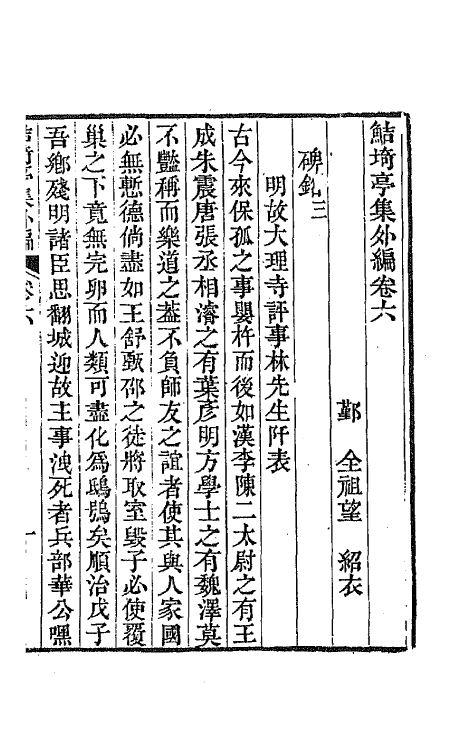 鮚埼亭集外編卷六
鄞　全祖望　紹衣
碑銘三
明故大理寺評事林先生阡表
古今來保孤之事嬰杵而後如漢李陳二太尉之有王
成朱震唐張丞相濬之有葉彥明方學士之有魏澤莫
不豔稱而樂道之蓋不負師友之誼者使其與人家國
必無慙德倘盡如王舒甄邵之徒將取室毀子必使覆
巢之下竟無完卵而人類可盡化爲鴟鴞矣順治戊子
吾鄉殘明諸臣思翻城迎故主事洩死者兵部華公嘿
鮚埼亭集外編　卷六　一